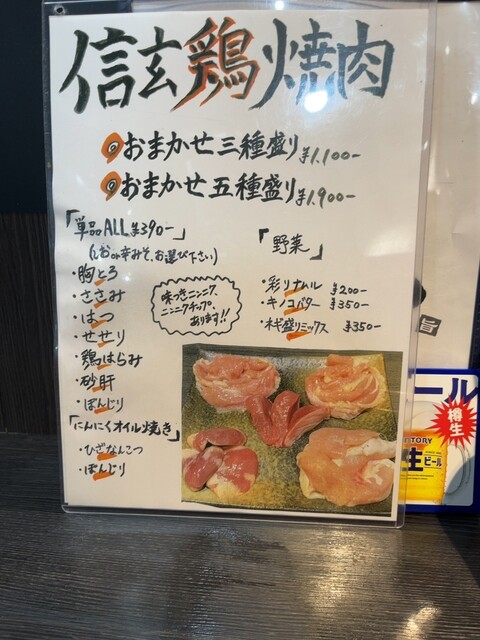 信玄鶏焼肉
おまかせ三種盛り ¥1.100-
おまかせ五種盛り ¥1.900-
「単品ALL ¥390-」
(しおor辛みそ、お選び下さい)
・胸とろ
・ささみ
・はつ
・せせり
・鶏はらみ
・砂肝
・ぼんじり
「にんにくオイル焼き」
・ひざなんこつ
・ぼんじり
味つきニンニク、
ニンニクチップ、
あります!!
「野菜」
・彩りナムル ¥200-
・キノコバター ¥350-
・ネギ盛りミックス ¥350-
旨
ール
樽生
TORY
生ビール